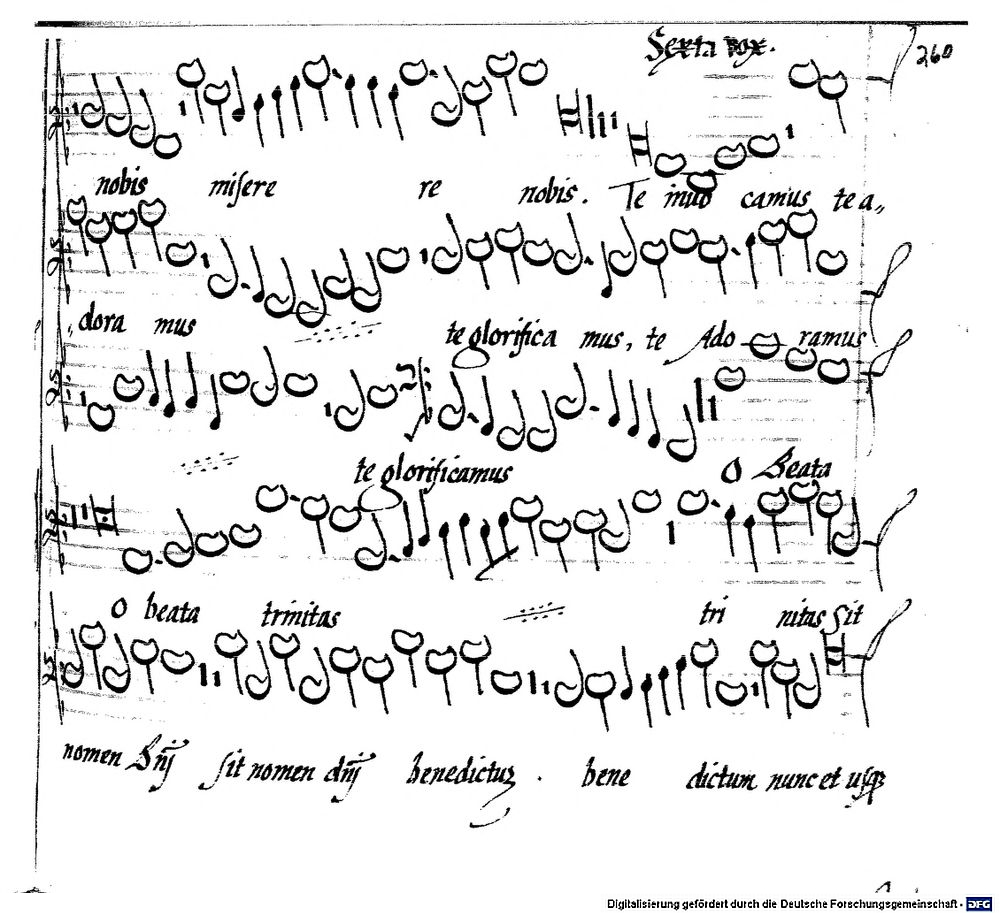 Sexta vox.
260
nobis misere re nobis. Te inuo camus te a,,
,,dora mus te glorifica mus, te Ado ramus
te glorificamus O Beata
O beata trinitas tri nitas Sit
nomen dñi sit nomen dñi benedictuz . bene dictum nunc et usqz
Digitalisierung gefördert durch die Deutsche Forschungsgemeinschaft - DFG